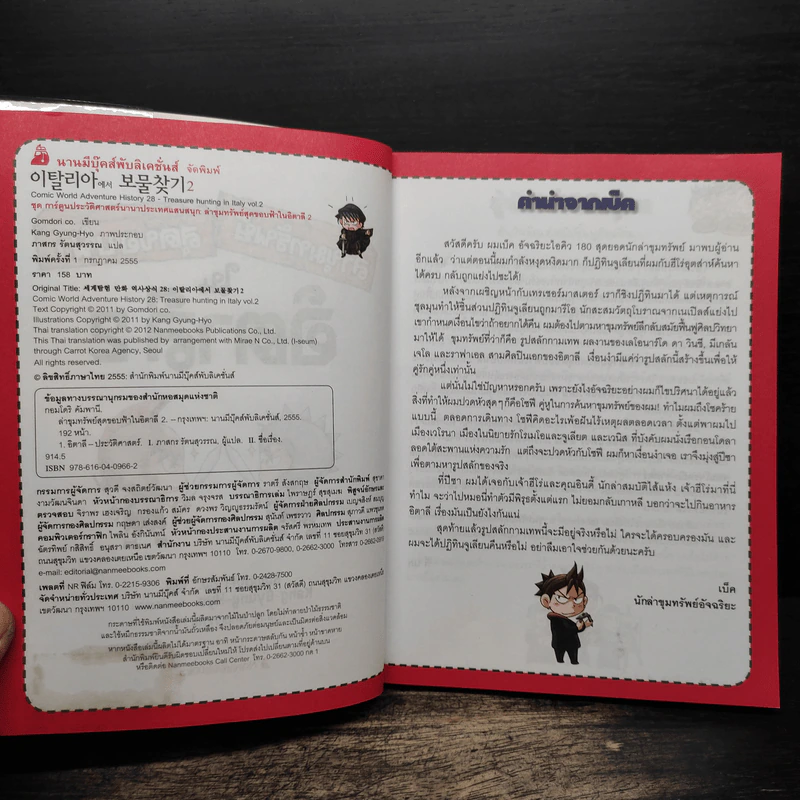 นานมีบุ๊คส์พับลิเคชั่นส์ จัดพิมพ์
이탈리아에서 보물찾기 2
Comic World Adventure History 28 - Treasure hunting in Italy vol.2
ชุด การ์ตูนประวัติศาสตร์นานาประเทศแสนสนุก ล่าขุมทรัพย์สุดขอบฟ้าในอิตาลี 2
Gomdori co. เขียน
Kang Gyung-Hyo ภาพประกอบ
ภาสกร รัตนสุวรรณ แปล
พิมพ์ครั้งที่ 1 กรกฎาคม 2555
ราคา 158 บาท
Original Title: 세계탐험 만화 역사상식 28: 이탈리아에서 보물찾기 2
Comic World Adventure History 28; Treasure hunting in Italy vol.2
Text Copyright © 2011 by Gomdori co.
Illustrations Copyright © 2011 by Kang Gyung-Hyo
Thai translation copyright © 2012 Nanmeebooks Publications Co., Ltd.
This Thai translation was published by arrangement with Mirae N Co., Ltd. (I-seum)
through Carrot Korea Agency, Seoul
All rights reserved.
© ลิขสิทธิ์ภาษาไทย 2555: สำนักพิมพ์นานมีบุ๊คส์พับลิเคชั่นส์
ข้อมูลทางบรรณานุกรมของสำนักหอสมุดแห่งชาติ
กอมโดริ คัมพานี.
ล่าขุมทรัพย์สุดขอบฟ้าในอิตาลี 2. – กรุงเทพฯ: นานมีบุ๊คส์พับลิเคชั่นส์, 2555.
192 หน้า.
1. อิตาลี – ประวัติศาสตร์. I. ภาสกร รัตนสุวรรณ, ผู้แปล. II. ชื่อเรื่อง.
914.5
ISBN 978-616-04-0966-2
กรรมการผู้จัดการ สุวดี จงสถิตย์วัฒนา ผู้ช่วยกรรมการผู้จัดการ ราตรี สังสกฤษ ผู้จัดการสำนักพิมพ์
งามวัฒนจินดา หัวหน้ากองบรรณาธิการ วิมล จรุงจรส บรรณาธิการเล่ม ไพราษฎร์ สุขสุเมฆ พิสูจน์อักษร
ตรวจสอบ จิราพร เฮงเจริญ กรองแก้ว สมัคร ดวงพร วิญญูธรรมรัตน์ ผู้จัดการฝ่ายศิลปกรรม
ผู้จัดการกองศิลปกรรม กฤษดา เส่งสงค์ ผู้ช่วยผู้จัดการกองศิลปกรรม สุนันท์ เพชรวาว ศิลปกรรม
คอมพิวเตอร์กราฟิก ไพลิน อังกินันทน์ หัวหน้ากองประสานงานการผลิต จรัสศรี พรหมเทพ ประสานงานการผลิต
อัครทิพย์ กสิสิทธิ์ อนุสรา ดาธเนศ สำนักงาน บริษัท นานมีบุ๊คส์พับลิเคชั่นส์ จำกัด เลขที่ 11 ซอยสุขุมวิท 31 (สวัสดี)
ถนนสุขุมวิท แขวงคลองเตยเหนือ เขตวัฒนา กรุงเทพฯ 10110 โทร. 0-2670-9800, 0-2662-3000 โทรสาร
e-mail: editorial@nanmeebooks.com
เพลตที่ NR ฟิล์ม โทร. 0-2215-9306 พิมพ์ที่ อักษรสัมพันธ์ โทร. 0-2428-7500
จัดจำหน่ายทั่วประเทศ บริษัท นานมีบุ๊คส์ จำกัด เลขที่ 11 ซอยสุขุมวิท 31 (สวัสดี) ถนนสุขุมวิท แขวงคลองเตยเหนือ
เขตวัฒนา กรุงเทพฯ 10110 www.nanmeebooks.com
กระดาษที่ใช้พิมพ์หนังสือเล่มนี้ผลิตมาจากไม้ในป่าปลูก โดยไม่ทำลายป่าไม้ธรรมชาติ
และใช้หมึกธรรมชาติจากน้ำมันถั่วเหลือง จึงปลอดภัยต่อมนุษย์และเป็นมิตรต่อสิ่งแวดล้อม
หากหนังสือเล่มนี้ผลิตไม่ได้มาตรฐาน อาทิ หน้ากระดาษสลับกัน หน้าซ้ำ หน้าขาดหาย
สำนักพิมพ์ยินดีรับผิดชอบเปลี่ยนใหม่ให้ โปรดส่งไปเปลี่ยนตามที่อยู่ด้านบน
หรือติดต่อ Nanmeebooks Call Center โทร. 0-2662-3000 กด 1
คำนำจากเบ็ค
สวัสดีครับ ผมเบ็ค อัจฉริยะไอคิว 180 สุดยอดนักล่าขุมทรัพย์ มาพบผู้อ่าน
อีกแล้ว ว่าแต่ตอนนี้ผมกำลังหงุดหงิดมาก ก็ปฏิทินจูเลียนที่ผมกับฮีโร่อุตส่าห์ค้นหา
ได้ครบ กลับถูกแย่งไปซะได้!
หลังจากเผชิญหน้ากับเทรเชอร์มาสเตอร์ เราก็ชิงปฏิทินมาได้ แต่เหตุการณ์
ชุลมุนทำให้ชิ้นส่วนปฏิทินจูเลียนถูกมารีโอ นักสะสมวัตถุโบราณจากเนเปิลส์แย่งไป
เขากำหนดเงื่อนไขว่าถ้าอยากได้คืน ผมต้องไปตามหาขุมทรัพย์ลึกลับสมัยฟื้นฟูศิลปวิทยา
มาให้ได้ ขุมทรัพย์ที่ว่าก็คือ รูปสลักกามเทพ ผลงานของเลโอนาร์โด ดา วินชี, มีเกลัน
เจโล และราฟาเอล สามศิลปินเอกของอิตาลี เงื่อนงำมีแค่ว่ารูปสลักนี้สร้างขึ้นเพื่อให้
คู่รักคู่หนึ่งเท่านั้น
แต่นั่นไม่ใช่ปัญหาหรอกครับ เพราะยังไงอัจฉริยะอย่างผมก็ไขปริศนาได้อยู่แล้ว
สิ่งที่ทำให้ผมปวดหัวสุดๆ ก็คือโซฟี คู่หูในการค้นหาขุมทรัพย์ของผม! ทำไมผมถึงโชคร้าย
แบบนี้ ตลอดการเดินทาง โซฟีคิดอะไรเพ้อฝันไร้เหตุผลตลอดเวลา ตั้งแต่พาผมไป
เมืองเวโรนา เมืองในนิยายรักโรมิโอและจูเลียต และเวนิส ที่บังคับผมนั่งเรือกอนโดลา
ลอดใต้สะพานแห่งความรัก แต่ถึงจะปวดหัวกับโซฟี ผมก็หาเงื่อนงำเจอ เราจึงมุ่งสู่ปีซา
เพื่อตามหารูปสลักของจริง
ที่ปีซา ผมได้เจอกับเจ้าฮีโร่และคุณอินดี้ นักล่าสมบัติไส้แห้ง เจ้าฮีโร่มาที่นี่
ทำไม จะว่าไปหมอนี่ทำตัวมีพิรุธตั้งแต่แรก ไม่ยอมกลับเกาหลี บอกว่าจะไปกินอาหาร
อิตาลี เรื่องมันเป็นยังไงกันแน่
สุดท้ายแล้วรูปสลักกามเทพนี้จะมีอยู่จริงหรือไม่ ใครจะได้ครอบครองมัน และ
ผมจะได้ปฏิทินจูเลียนคืนหรือไม่ อย่าลืมเอาใจช่วยกันด้วยนะครับ
เบ็ค
นักล่าขุมทรัพย์อัจฉริยะ